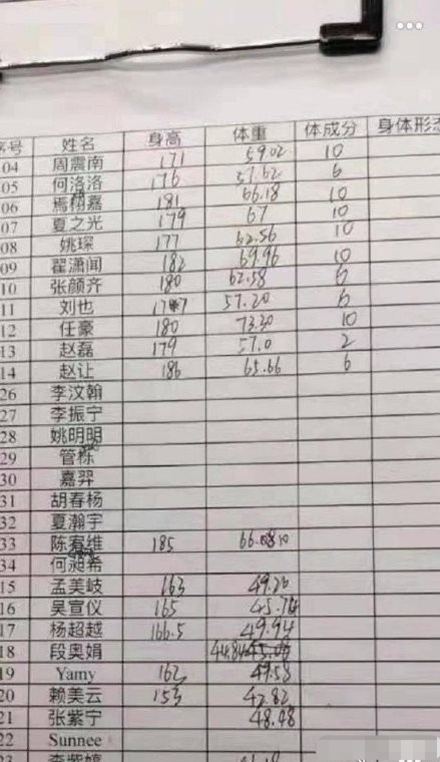 序号 姓名 身高 体重 体成分 身体形态
04 周震南 171 59.02 10
05 何洛洛 176 57.62 6
06 焉栩嘉 181 66.18 10
07 夏之光 179 67 10
08 姚琛 177 62.56 10
09 翟潇闻 182 69.96 10
10 张颜齐 180 62.58 6
11 刘也 57.20 6
12 任豪 180 73.30 10
13 赵磊 179 57.0 2
14 赵让 186 65.66 6
26 李汶翰
27 李振宁
28 姚明明
29 管栎
30 嘉羿
31 胡春杨
32 夏瀚宇
33 陈宥维 185
34 何昶希
15 孟美岐 163 49.20
16 吴宣仪 165 45.76
17 杨超越 166.5 49.94
18 段奥娟 44.84
19 Yamy 162 49.58
20 赖美云 153 42.82
21 张紫宁 48.48
22 Sunnee
23